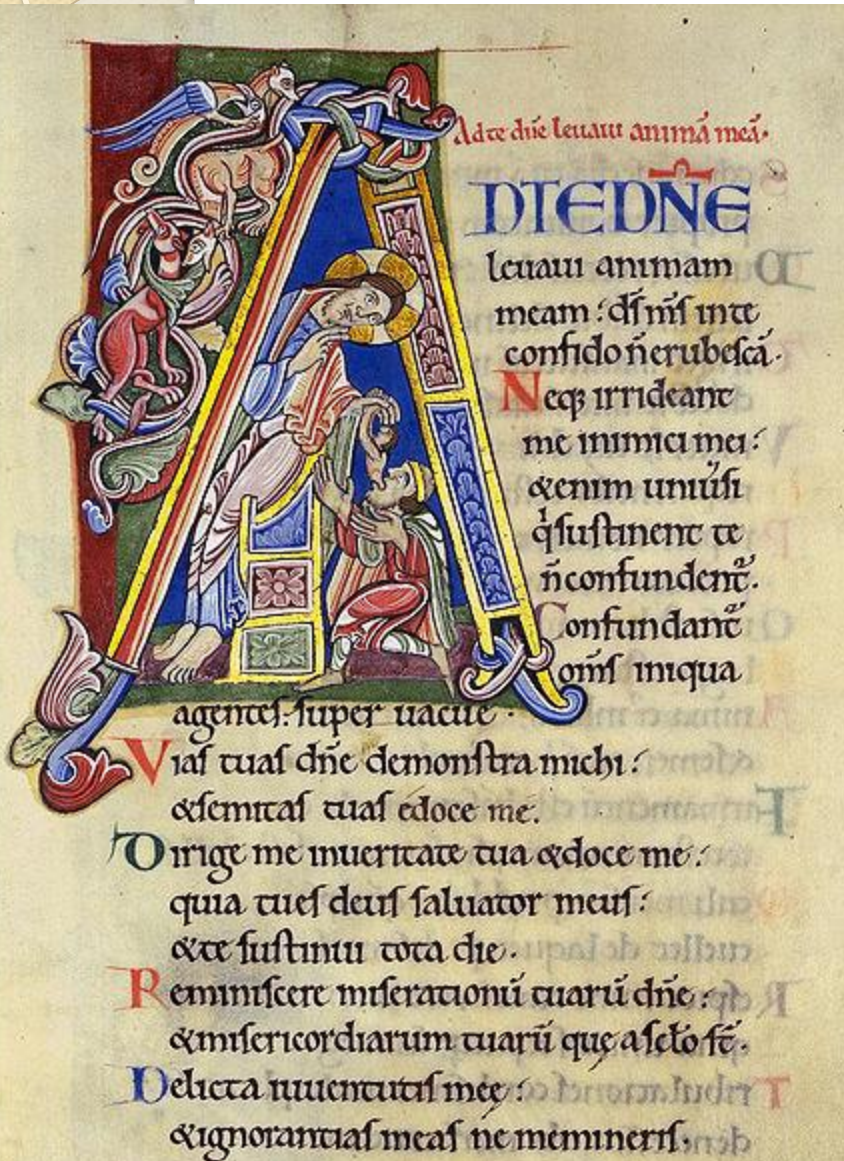 Ad te dn̄e leuaui animā meā.
D TE DN̄E
leuaui animam
meam : ds̄ ms̄ in te
confido n̄ erubescā.
Neq; irrideant
me inimici mei :
& enim uniuˢi
qⁱ sustinent te
n̄ confundent̄.
Confundant̄
om̄s iniqua
agentes : super uacue .
Vias tuas dn̄e demonstra michi :
& semitas tuas edoce me.
Dirige me in ueritate tua & doce me :
quia tu es deus saluator meus :
& te sustinui tota die .
Reminiscere miserationū tuarū dn̄e :
& misericordiarum tuarū que a sc̄lo st̄ .
Delicta iuuentutis mee :
& ignorantias meas ne memineris.